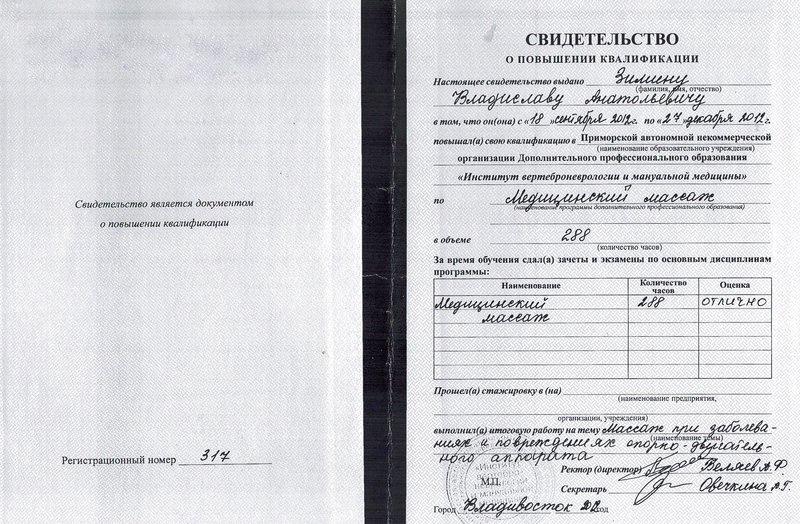 Свидетельство является документом
о повышении квалификации
Регистрационный номер 317
СВИДЕТЕЛЬСТВО
О ПОВЫШЕНИИ КВАЛИФИКАЦИИ
Настоящее свидетельство выдано Зимину
(фамилия, имя, отчество)
Владиславу Анатольевичу
в том, что он(она) с «18» сентября 2012г. по «27» декабря 2012г.
повышал(а) свою квалификацию в Приморской автономной некоммерческой
(наименование образовательного учреждения)
организации Дополнительного профессионального образования
«Институт вертеброневрологии и мануальной медицины»
по Медицинский массаж
(наименование программы дополнительного профессионального образования)
в объеме 288
(количество часов)
За время обучения сдал(а) зачеты и экзамены по основным дисциплинам
программы:
Наименование Количество часов Оценка
Медицинский 288 ОТЛИЧНО
массаж
Прошел(а) стажировку в (на)
(наименование предприятия,
организации, учреждения)
выполнил(а) итоговую работу на тему Массаж при заболева-
(наименование темы)
ниях и повреждениях опорно-двигатель-
ного аппарата
Ректор (директор) Беляев А.Ф
М.П.
Секретарь Овечкина Л.Г.
Город Владивосток 2012 год